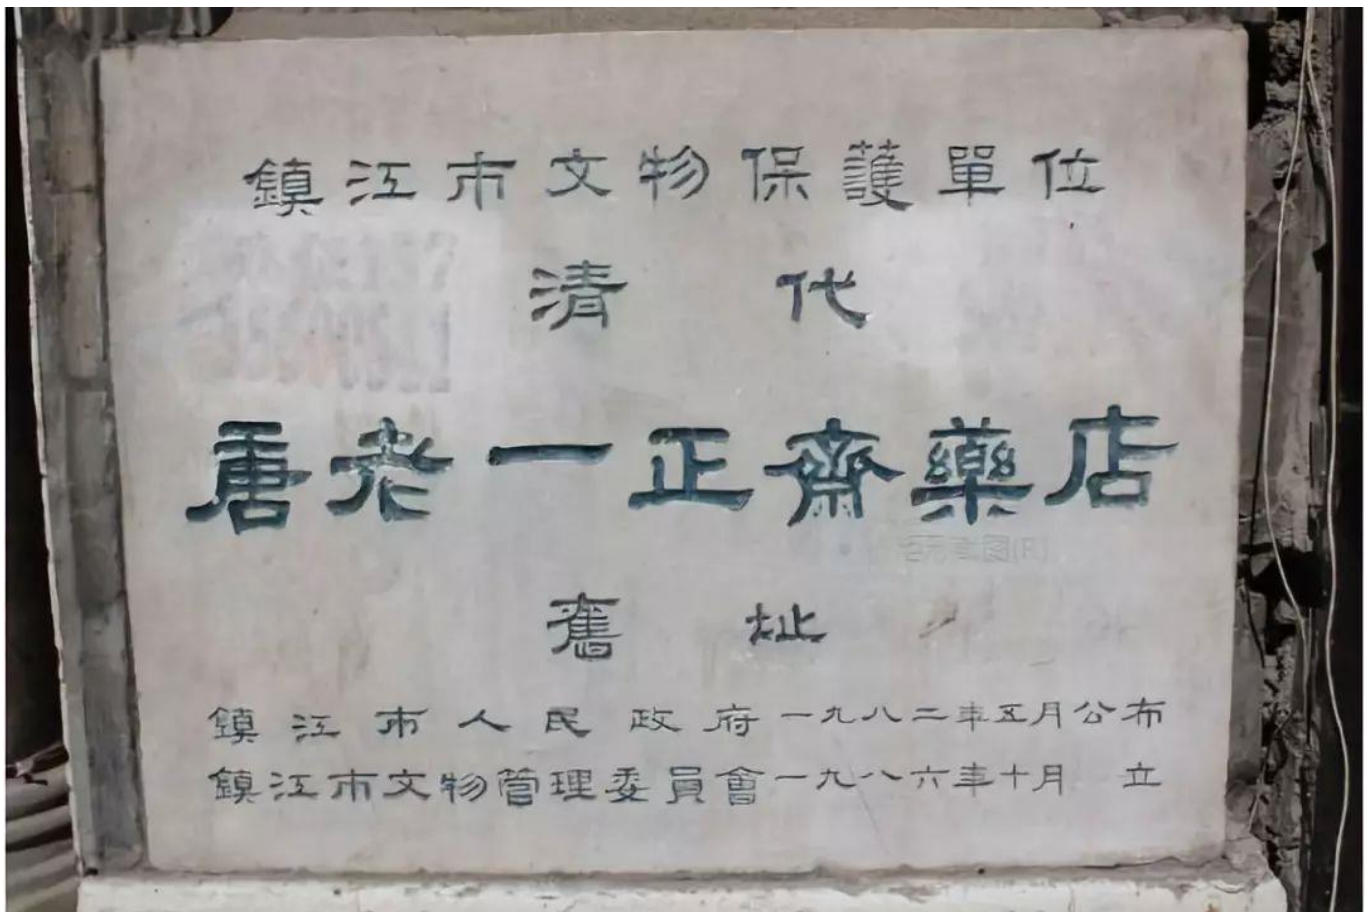 鎮江市文物保護單位
清代
唐老一正齋藥店
舊址
鎮江市人民政府一九八二年五月公布
鎮江市文物管理委員會一九八六年十月 立